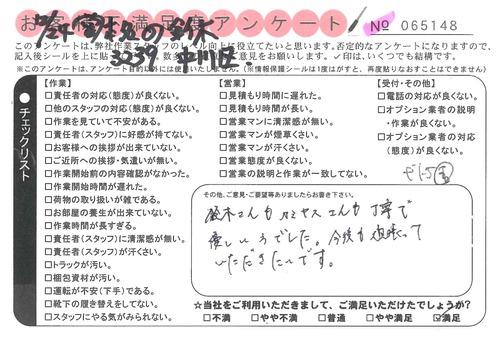 お客様満足度アンケート
No 065148
3039 中川区
このアンケートは、弊社作業スタッフのレベル向上に役立てたいと思います。否定的なアンケートになりますので、
記入後シールを上に貼り
意見をお願いします。✓印は、いくつでも結構です。
※このアンケートは、アンケート目的以外には使用いたしません。(※情報保護シールは1度はがすと、再度貼りなおすことはできません)
チェックリスト
【作業】
□責任者の対応(態度)が良くない。
□他のスタッフの対応(態度)が良くない。
□作業を見ていて不安がある。
□責任者(スタッフ)に好感が持てない。
□お客様への挨拶が出来ていない。
□ご近所への挨拶・気遣いが無い。
□作業開始前の内容確認がなかった。
□作業開始時間が遅れた。
□荷物の取り扱いが雑である。
□お部屋の養生が出来ていない。
□作業時間が長すぎる。
□責任者(スタッフ)に清潔感が無い。
□責任者(スタッフ)が汗くさい。
□トラックが汚い。
□梱包資材が汚い。
□運転が不安(下手)である。
□靴下の履き替えをしてない。
□スタッフにやる気がみられない。
【営業】
□見積もり時間に遅れた。
□見積もり時間が長い。
□営業マンに清潔感が無い。
□営業マンが煙草くさい。
□営業マンが汗くさい。
□営業態度が良くない。
□営業の説明と作業が一致してない。
【受付・その他】
□電話の対応が良くない。
□オプション業者の説明
・作業が良くない。
□オプション業者の対応
(態度)が良くない。
その他、ご意見・ご要望等ありましたらお書き下さい。
鈴木さんも カミヤスさんも 丁寧で
優しい
でした。今後も 頑張って
いただきたいです。
☆当社をご利用いただきまして、ご満足いただけたでしょうか?
□不満 □やや不満 □普通 □やや満足 ☑満足